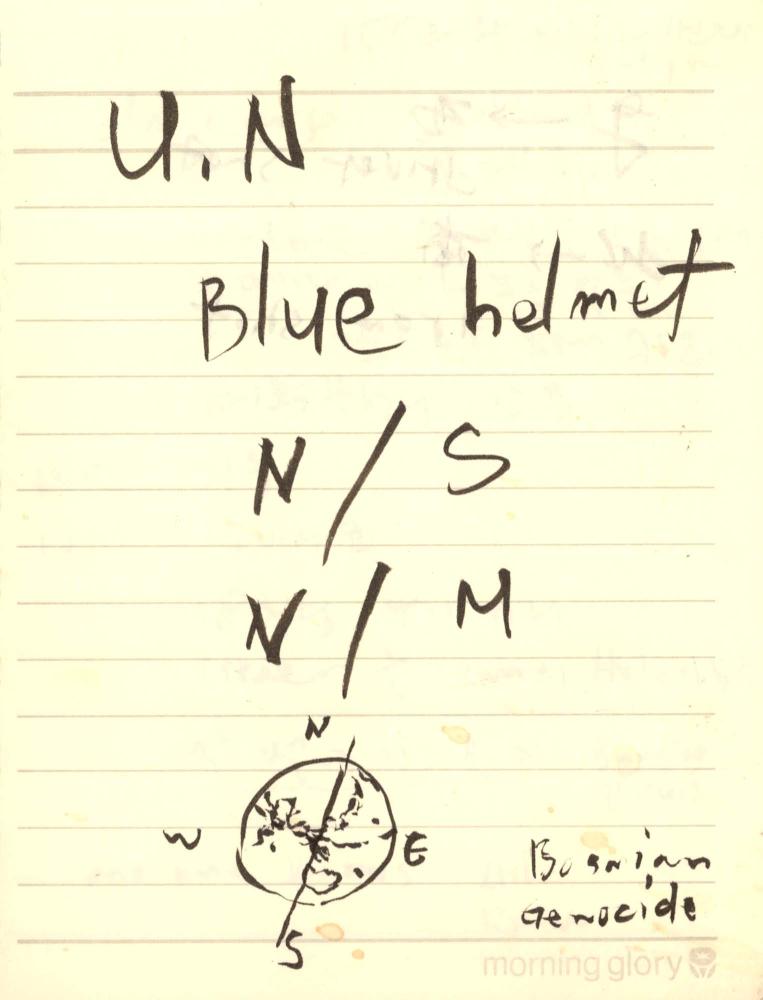 U.N
Blue helmet
N / S
N / M
N
W E
S
Bosnian
Genocide
morning glory